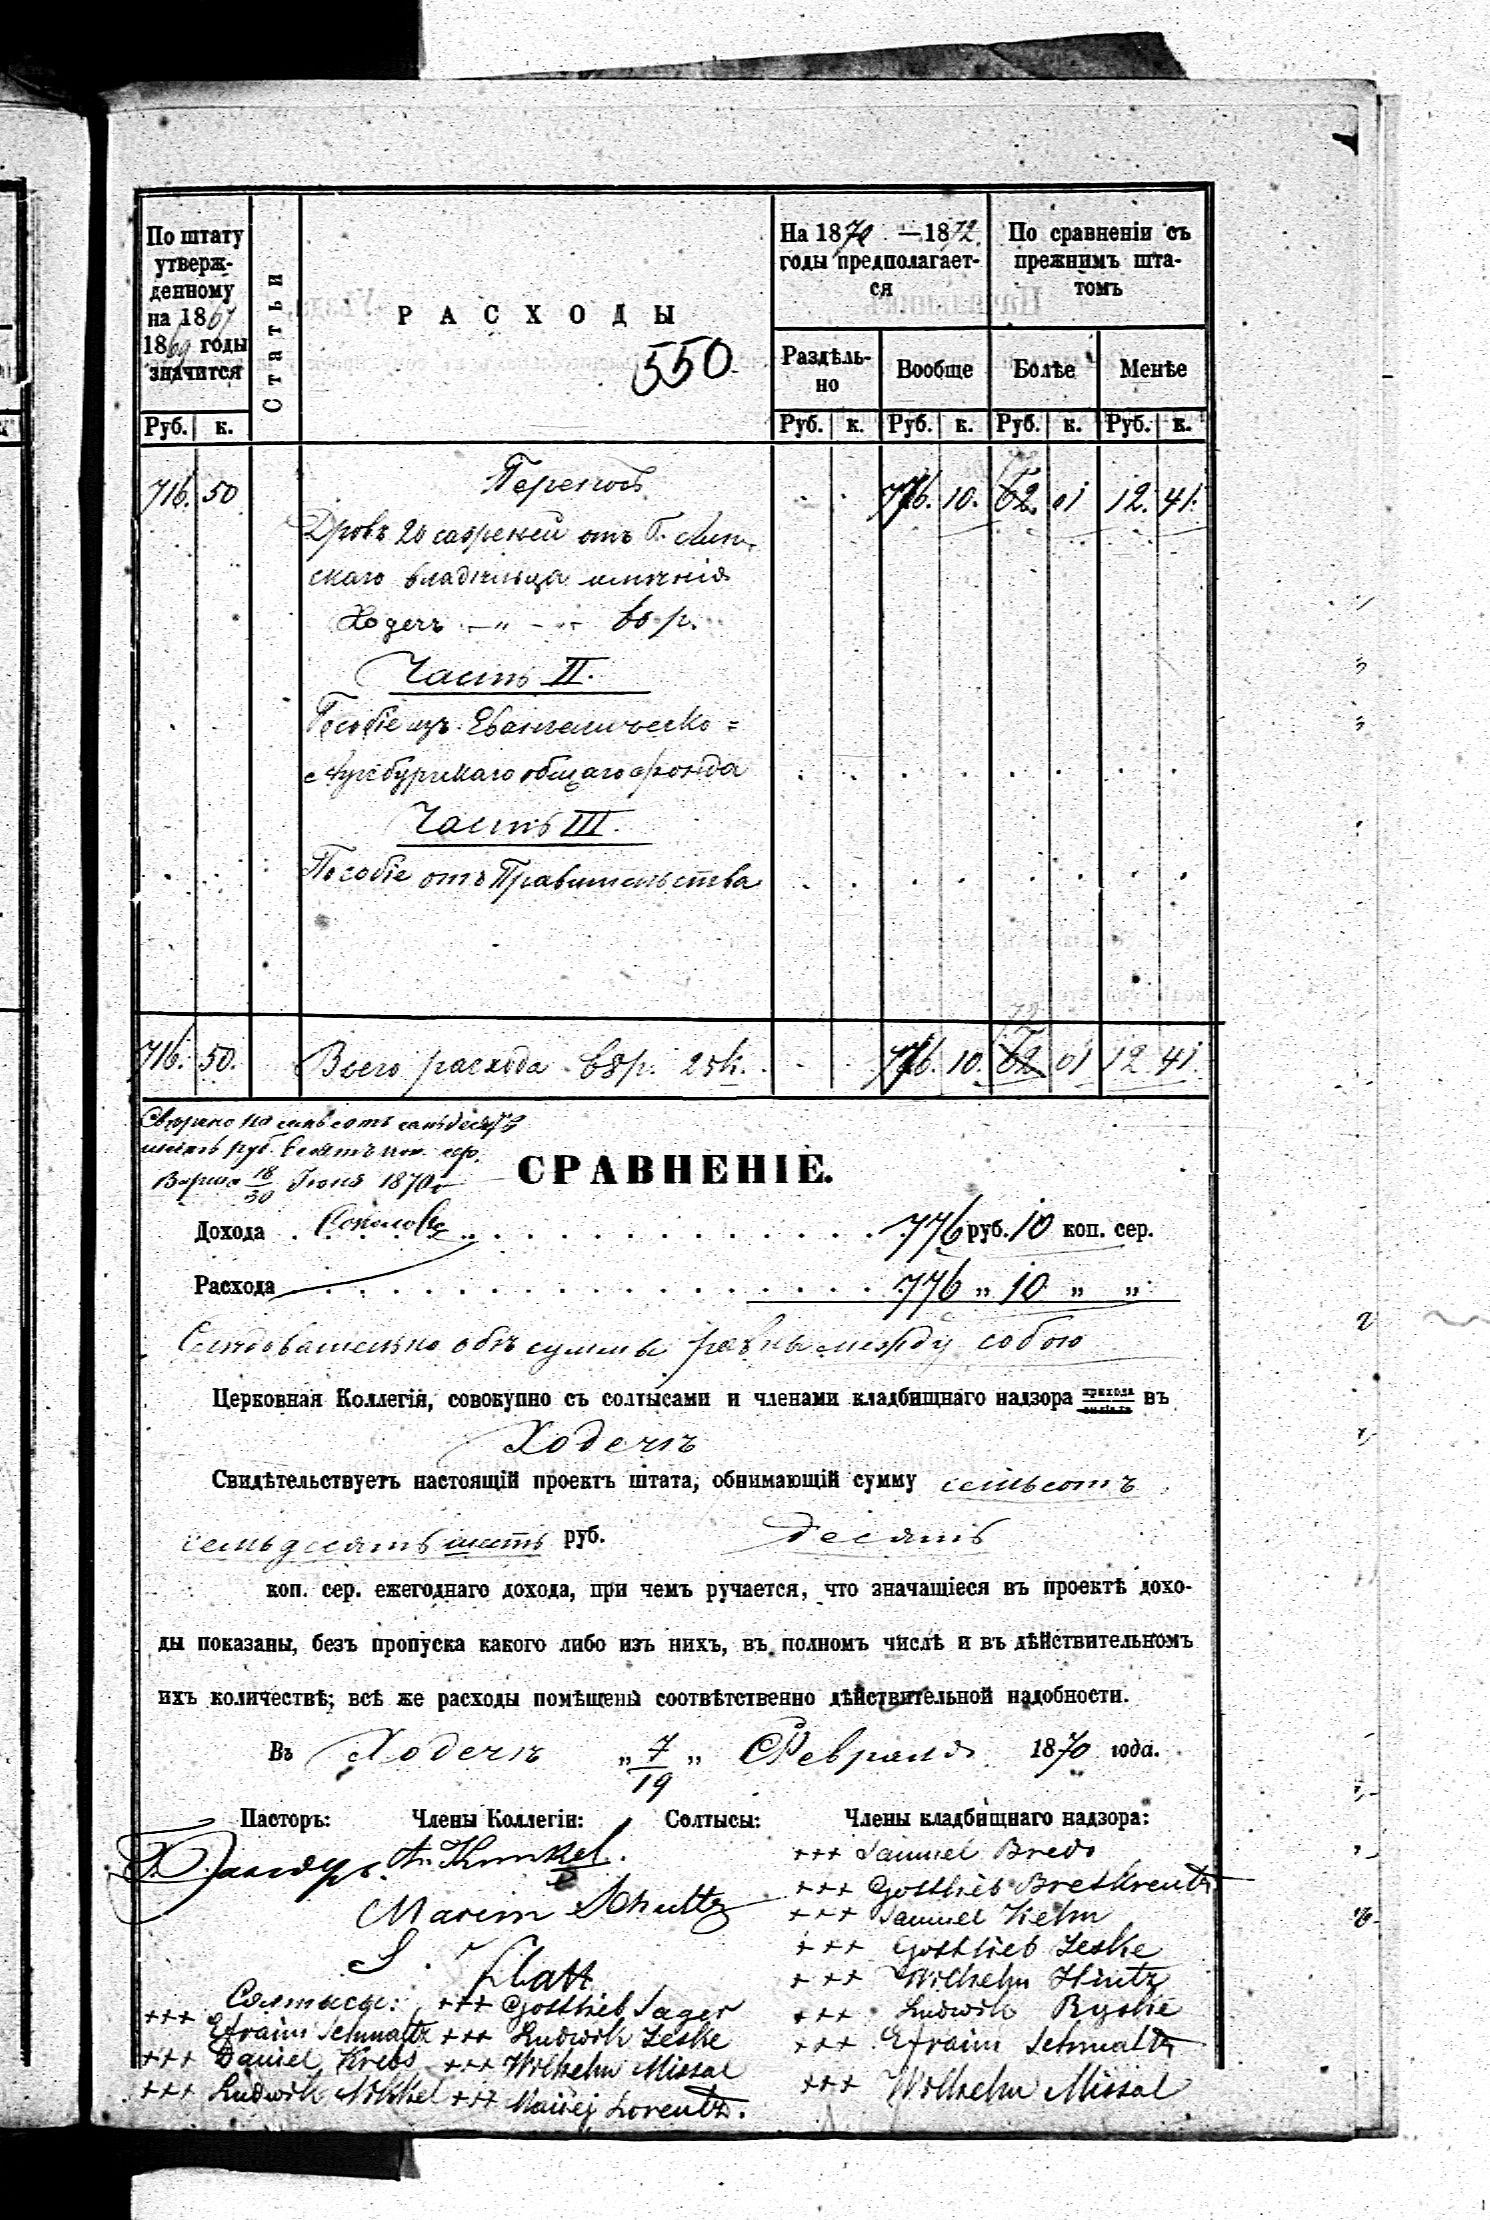 По штату утверж-
денному
на 1867
1869 годы
значится
Статьи
РАСХОДЫ
550
На 1870 — 1872
годы предполагает-
ся
По сравненіи съ
прежнимъ шта-
томъ
Раздѣль-
но
Вообще
Болѣе
Менѣе
Руб. к. Руб. к. Руб. к. Руб. к. Руб. к.
716. 50 Переносъ 776. 10. 62. 01 12. 41.
Дровъ 20 саженей отъ Г.
скаго владѣльца имѣнія
Ходечъ — „ — 60 р.
Часть II.
Пособіе изъ Евангелическо=
Аугсбургскаго общаго фонда
Часть III.
Пособіе отъ Правительства
72
716. 50. Всего расхода 68 р. 25 к. 776. 10. 62 01 12 41.
семьсотъ семьдесятъ
шесть руб. десять коп. сер.
18/30 Іюня 1870 г.
СРАВНЕНІЕ.
Дохода 776 руб. 10 коп. сер.
Расхода 776 „ 10 „ „
Слѣдовательно обѣ суммы равны между собою
Церковная Коллегія, совокупно съ солтысами и членами кладбищнаго надзора прихода въ
Ходечъ
Свидѣтельствуетъ настоящій проектъ штата, обнимающій сумму семьсотъ
семьдесятъ шесть руб. десять
коп. сер. ежегоднаго дохода, при чемъ ручается, что значащіеся въ проектѣ дохо-
ды показаны, безъ пропуска какого либо изъ нихъ, въ полномъ числѣ и въ дѣйствительномъ
ихъ количествѣ; всѣ же расходы помѣщены соотвѣтственно дѣйствительной надобности.
Въ Ходечъ „ 7/19 „ Февраля 1870 года.
Пасторъ: Члены Коллегіи: Солтысы: Члены кладбищнаго надзора:
A. Kunkel.
Marcin Schultz
S. Flatt
Солтысы:
+++ Efraim Schmaltz
+++ Daniel Krebs
+++ Ludwik Nikkel
+++ Gottlieb Jager
+++ Ludwik Jeske
+++ Wilhelm Missal
+++ Maciej Lorentz.
+++ Samuel Bredo
+++ Gottlieb Bretkreutz
+++ Samuel Kelm
+++ Gottlieb Jeske
+++ Wilhelm Hintz
+++ Ludwik Ryske
+++ Efraim Schmaltz
+++ Wilhelm Missal